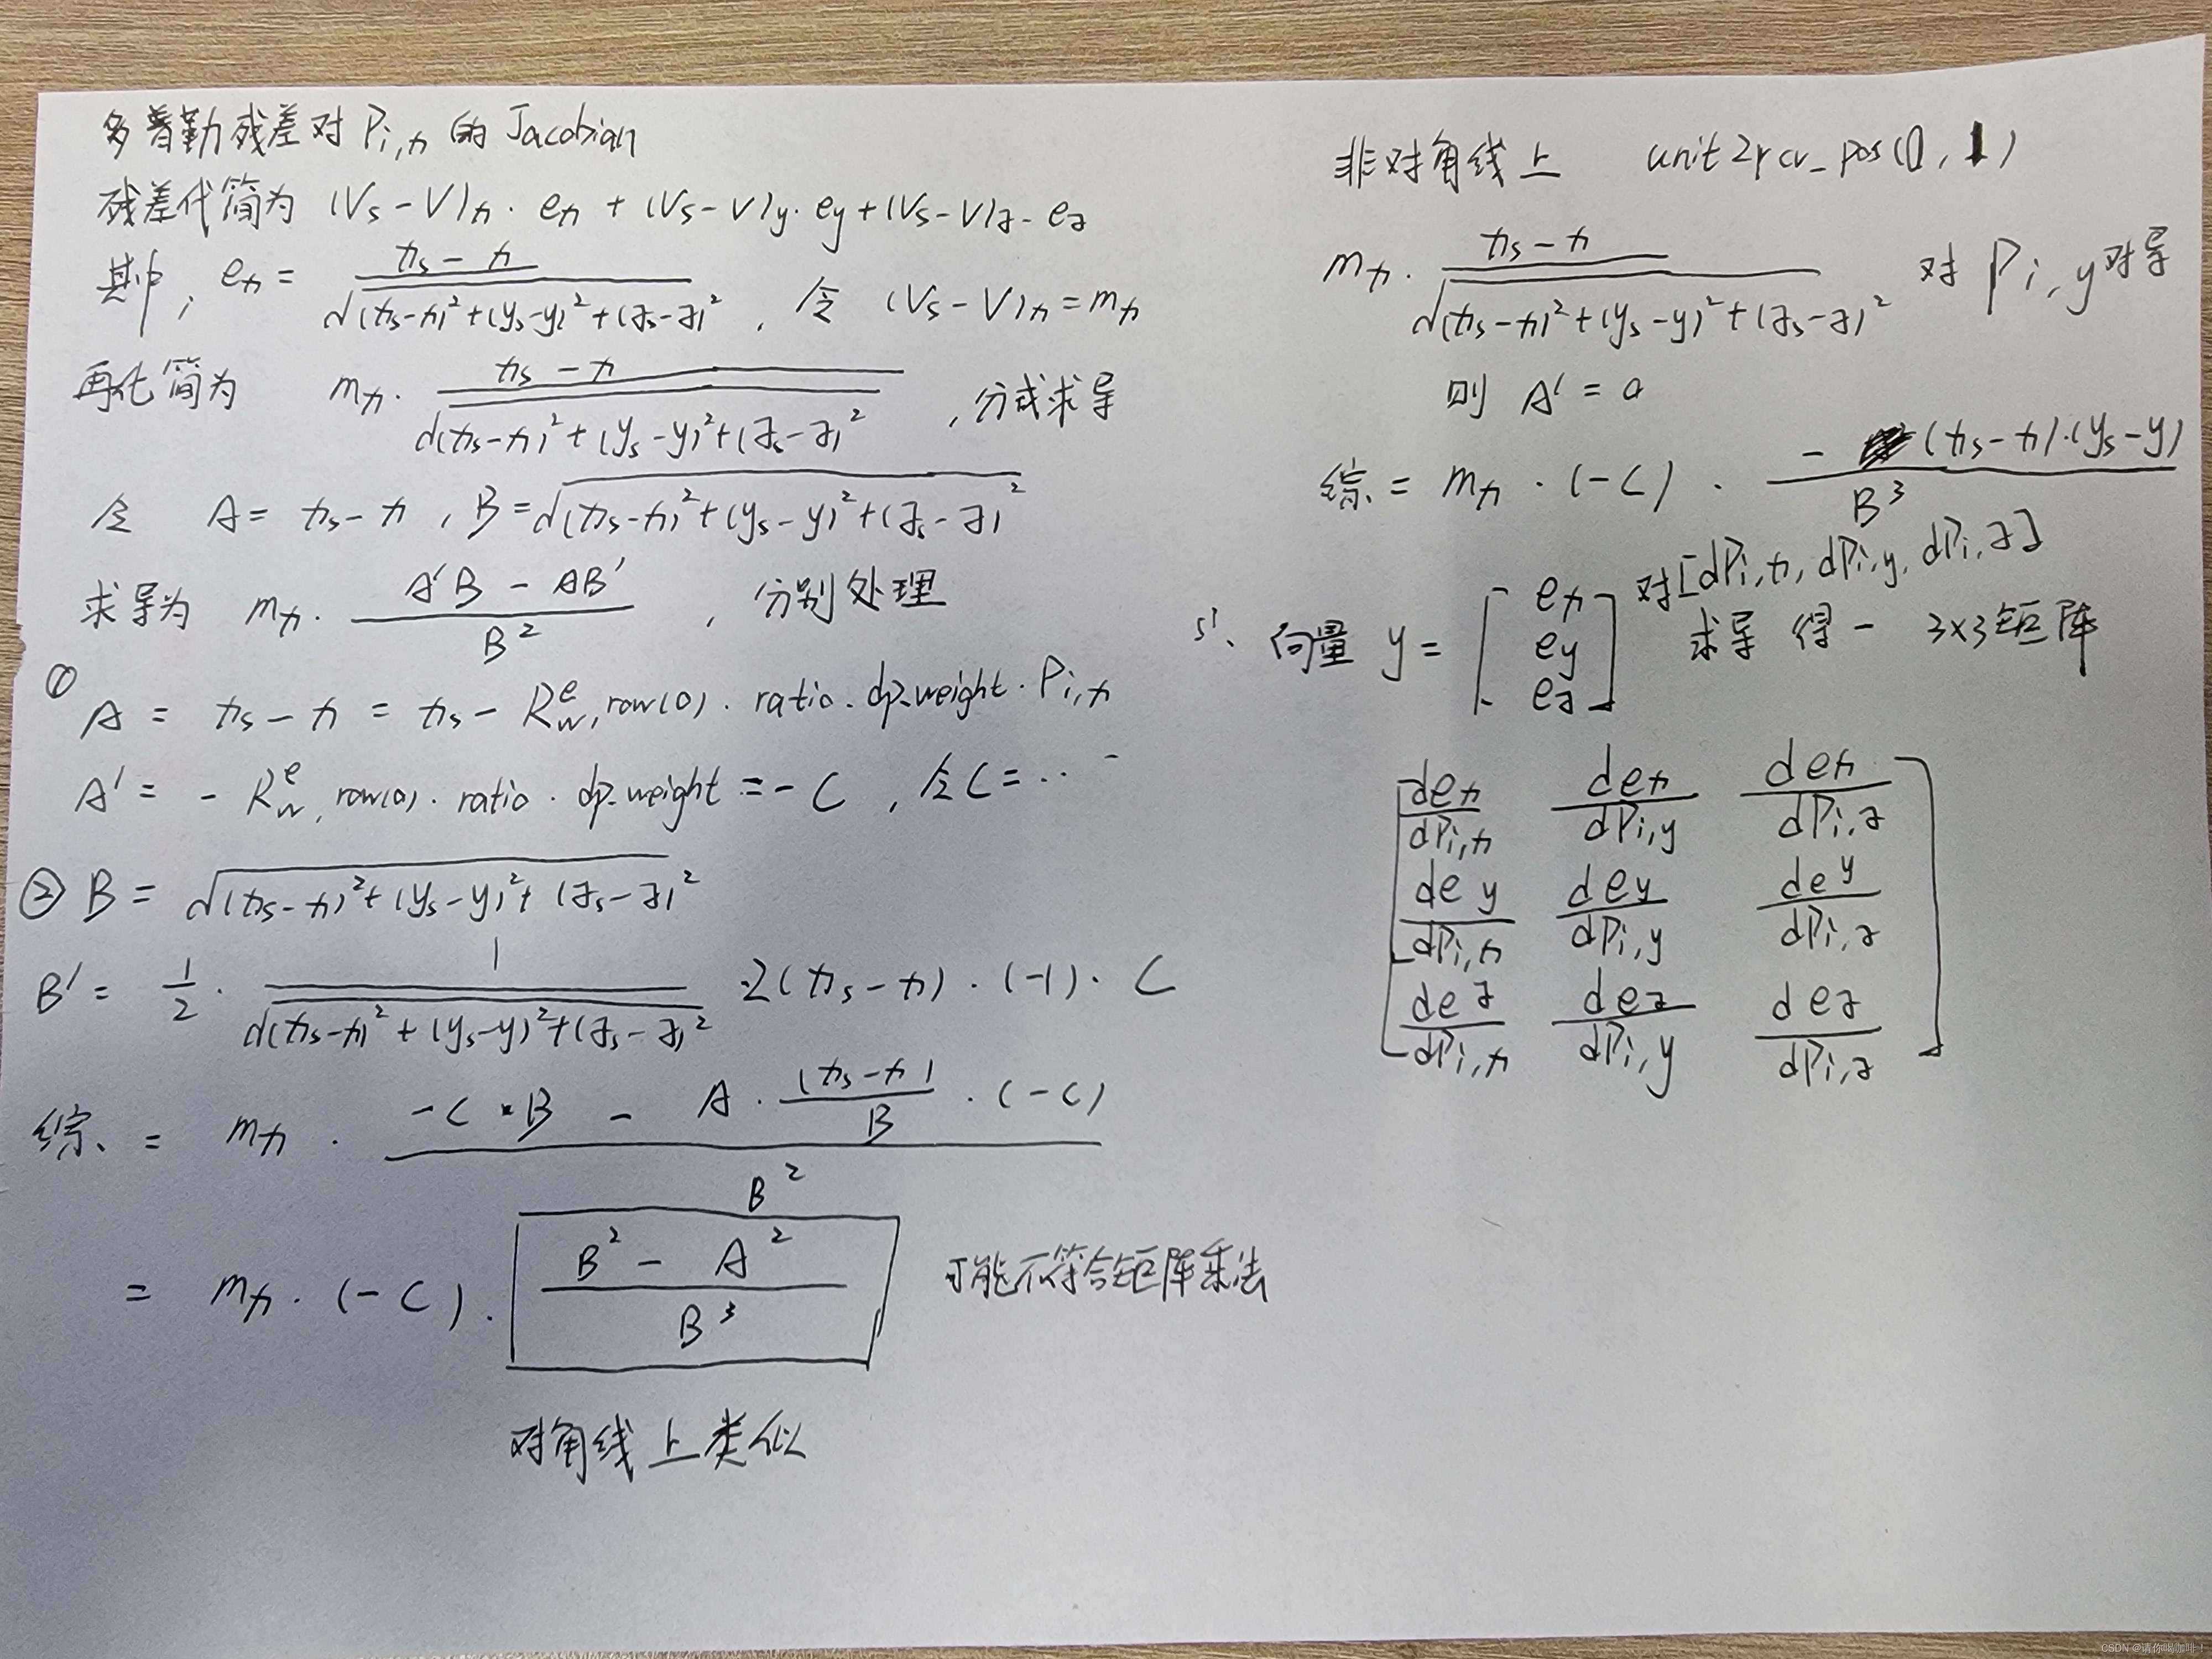 多普勒残差对 Pi,x 的 Jacobian
残差化简为 (Vs-V)x · ex + (Vs-V)y · ey + (Vs-V)z · ez
其中, ex = (xs - x) / √((xs-x)²+(ys-y)²+(zs-z)²) , 令 (Vs-V)x = mx
再化简为 mx · (xs - x) / √((xs-x)²+(ys-y)²+(zs-z)²) , 分式求导
令 A = xs - x , B = √((xs-x)²+(ys-y)²+(zs-z)²)
求导为 mx · (A'B - AB') / B² , 分别处理
① A = xs - x = xs - R_w^e, row(0) · ratio · dp_weight · Pi,x
A' = - R_w^e, row(0) · ratio · dp_weight = - C , 令C = ...
② B = √((xs-x)²+(ys-y)²+(zs-z)²)
B' = 1/2 · 1 / √((xs-x)²+(ys-y)²+(zs-z)²) · 2(xs-x) · (-1) · C
综 = mx · (-C · B - A · (xs-x)/B · (-C)) / B²
= mx · (-C) · (B² - A²) / B³ 可能不符合矩阵乘法
对角线上类似
非对角线上 unit2rcv_pos(0,1)
mx · (xs - x) / √((xs-x)²+(ys-y)²+(zs-z)²) 对 Pi,y 求导
则 A' = 0
综 = mx · (-C) · -(xs-x)·(ys-y) / B³
向量 y = [ex ey ez] 对[dPi,x, dPi,y, dPi,z]
求导 得一 3×3矩阵
dex/dPi,x dex/dPi,y dex/dPi,z
dey/dPi,x dey/dPi,y dey/dPi,z
dez/dPi,x dez/dPi,y dez/dPi,z
CSDN @请你喝咖啡!